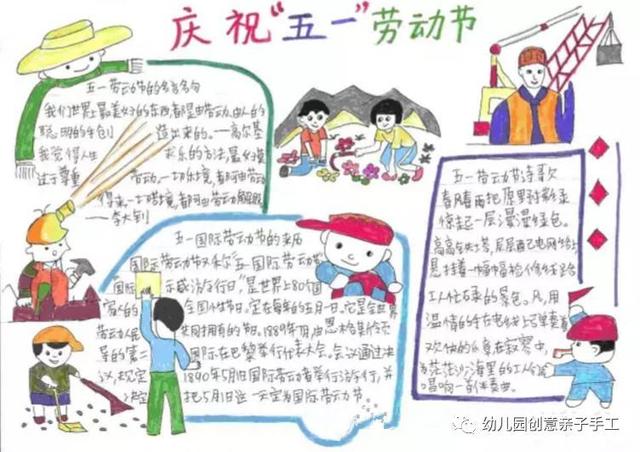 庆祝“五一”劳动节
五一劳动节的名言名句
我们世界上最美好的东西都是由劳动、由人的
聪明的手创造出来的。——高尔基
我觉得人生求乐的方法最好莫
过于尊重劳动,一切乐境,都可由劳动
得来,一切苦境,都可由劳动解脱
——李大钊
五一国际劳动节的来历
国际劳动节又称“五一国际劳动节
国际示威游行日”是世界上80个国
家的全国性节日。定在每年的五月一日。它是全世界
劳动人民共同拥有的节日。1889年7月,由恩格斯
第二国际在巴黎举行代表大会。会议通过决
议,规定1890年5月1日国际劳动者举行游行,并
决定把5月1日这一天定为国际劳动节
五一劳动节诗歌
春风
惊起一层漫漫绿色。
高高
悬挂着一幅幅
工人忙碌的景色。
温情的手在电线上
欢快的
茫茫沙海里的工人
唱响一首伴奏曲。
幼儿园创意亲子手工